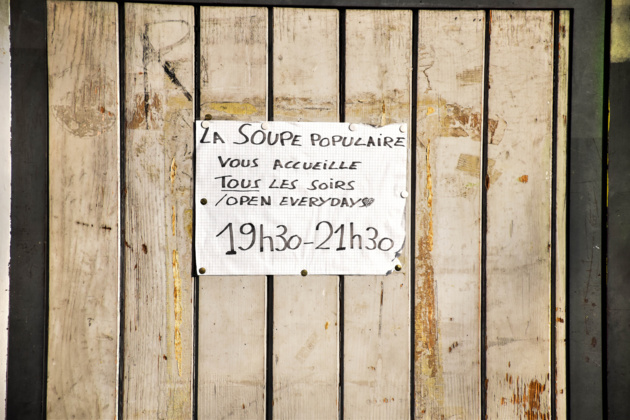 R
LA SOUPE POPULAIRE
VOUS ACCUEILLE
TOUS LES SOIRS
/OPEN EVERYDAYS
19h30-21h30